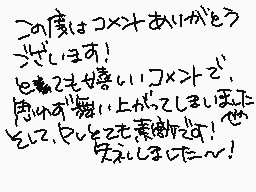 この度はコメントありがとう
ございます!
とても嬉しいコメントで、
思わず舞い上がってしまいました
そして、とても素敵です!
失礼しました〜!